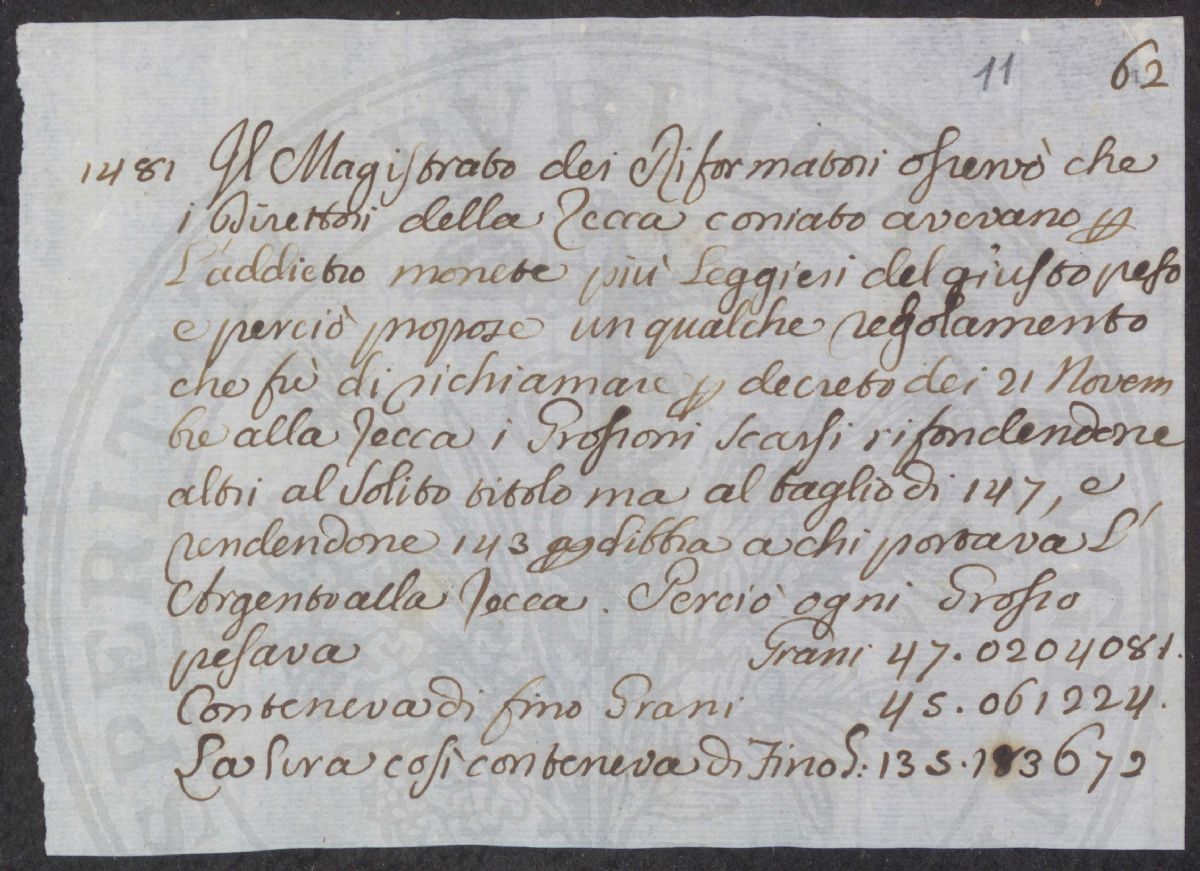 11 62
1481 Il Magistrato dei Riformatori osservò che
i Direttori della Zecca coniato avevano p
L'addietro monete più Leggieri del giusto peso
e perciò propose un qualche regolamento
che fù di richiamare p decreto dei 21 Novem
bre alla Zecca i Grossoni scarsi rifondendone
altri al solito titolo ma al taglio di 147, e
rendendone 143 p libbra a chi portava L'
Argento alla Zecca. Perciò ogni Grosso
pesava Grani 47.0204081.
Conteneva di fino Grani 45.061224.
La Lira così conteneva di Fino G: 135.183672
PVBLIC